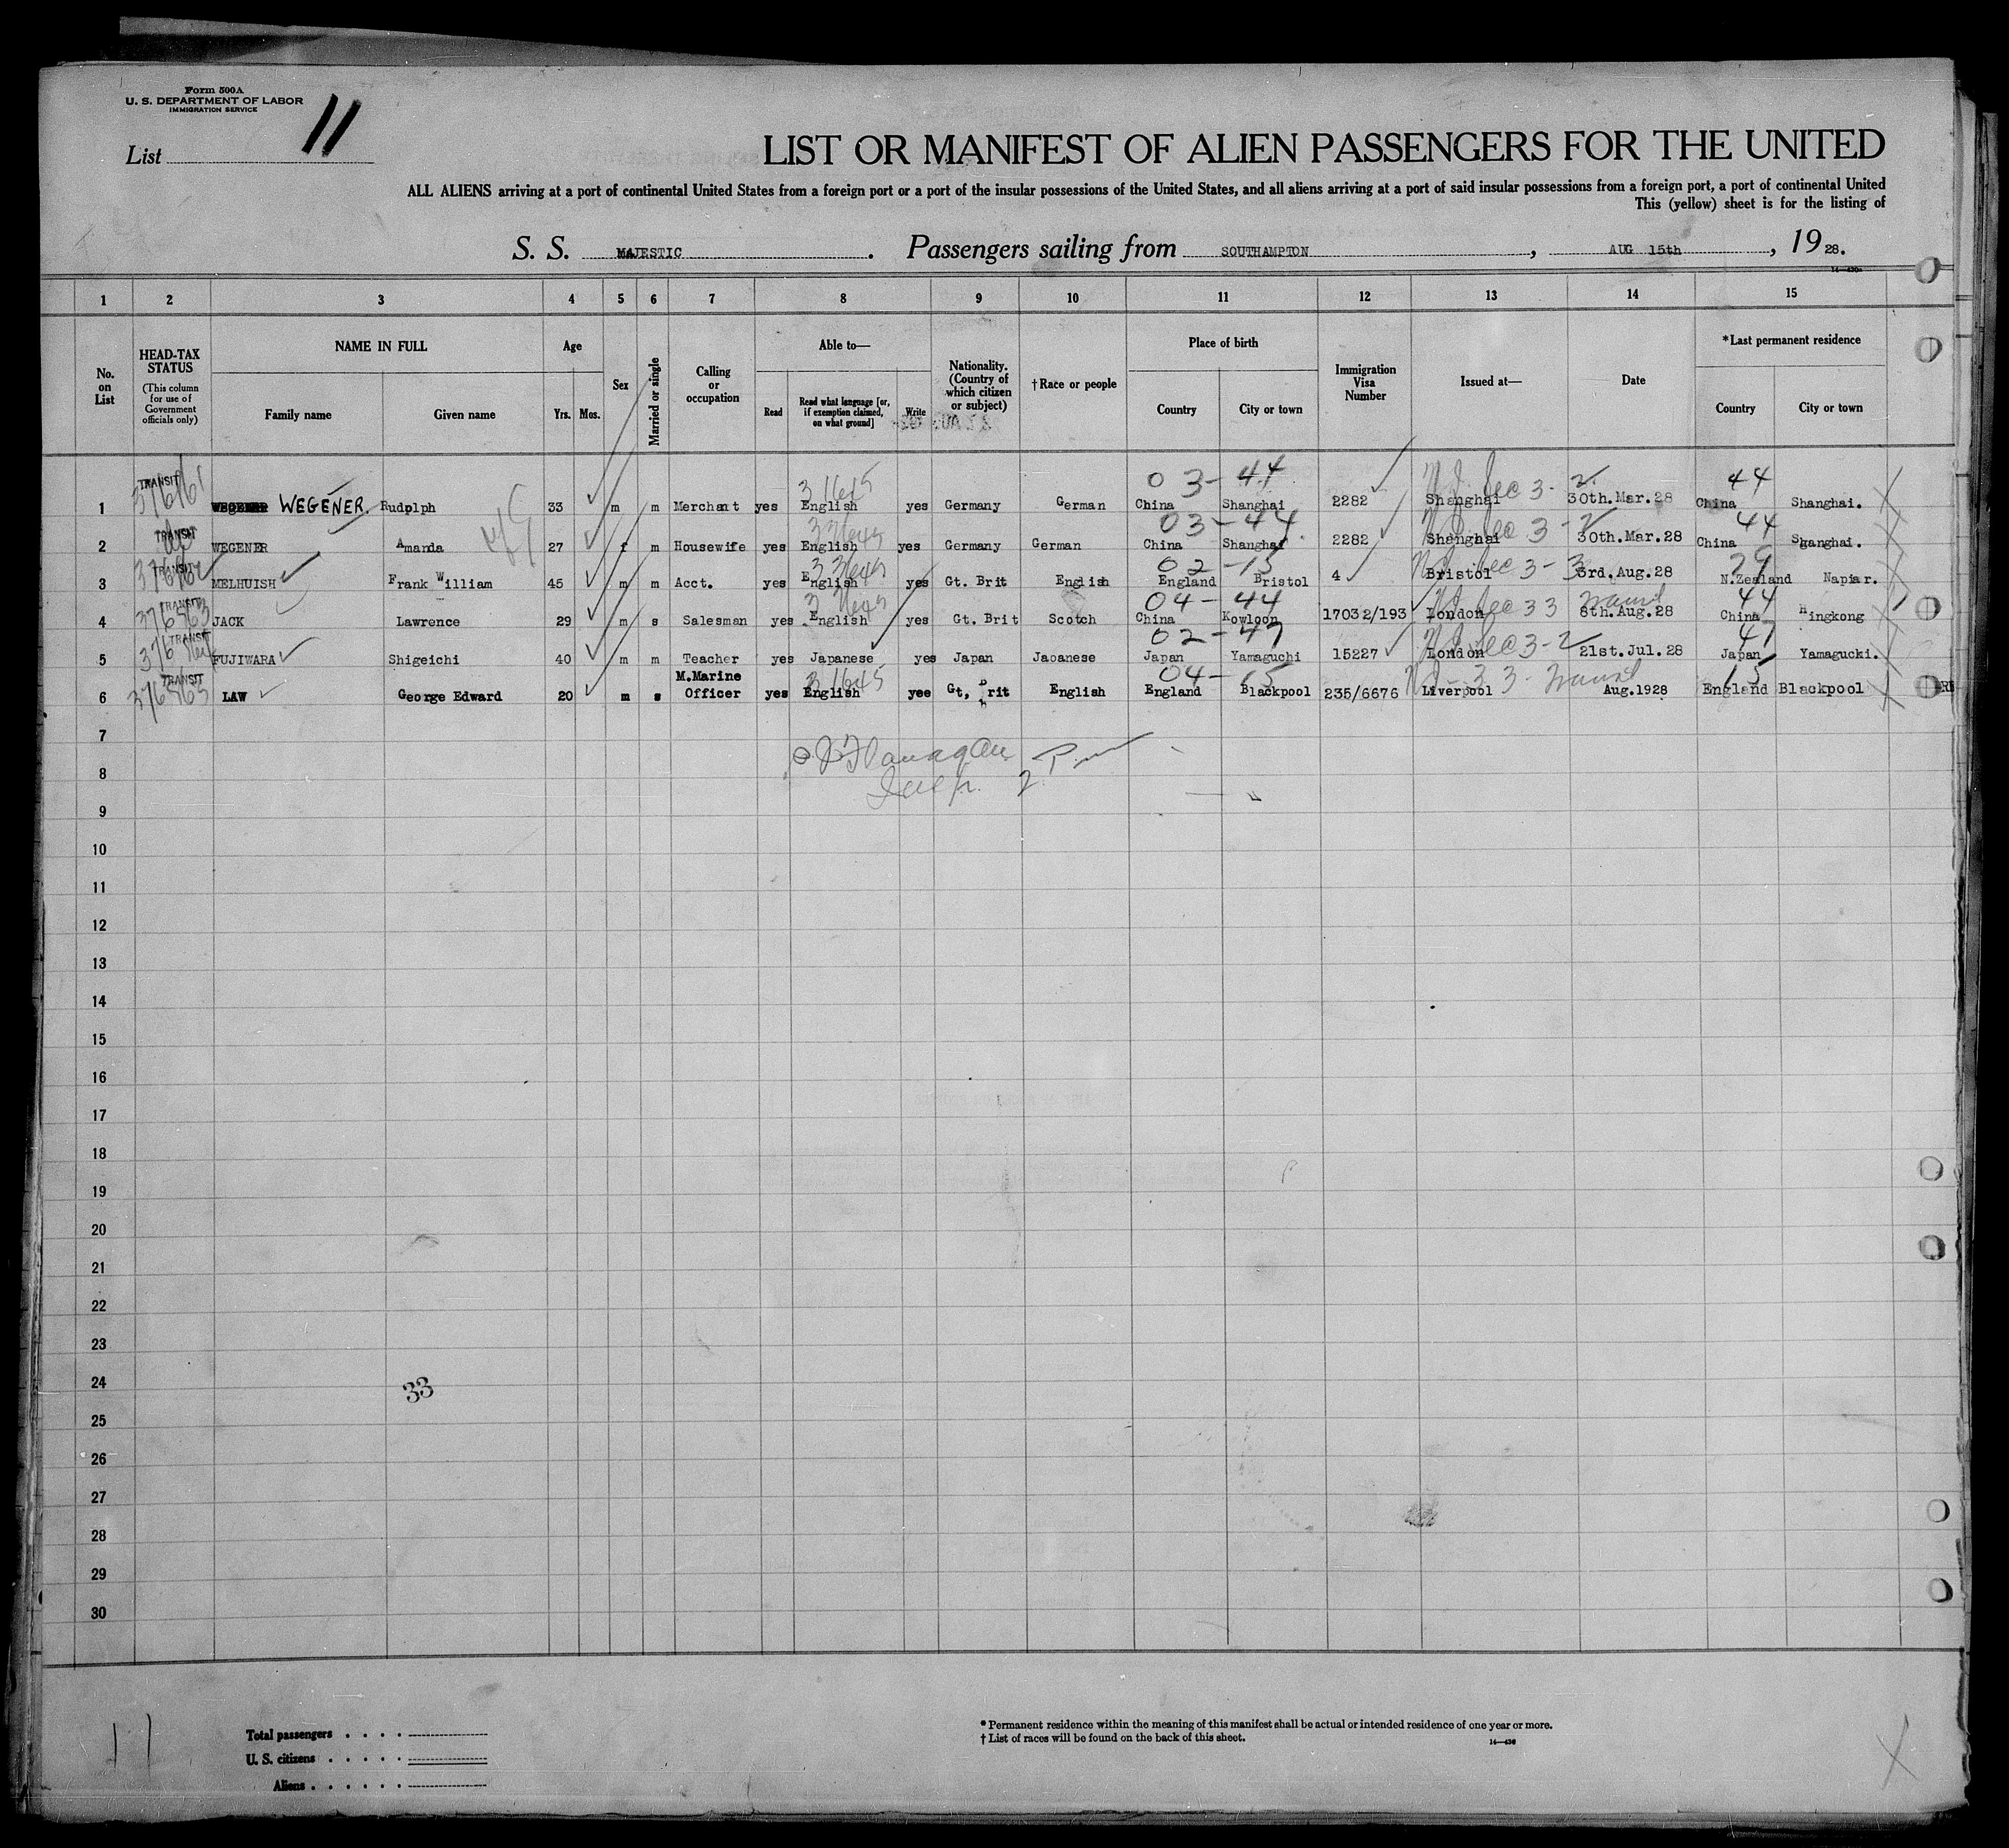 Form 500A
U. S. DEPARTMENT OF LABOR
IMMIGRATION SERVICE
List 11
LIST OR MANIFEST OF ALIEN PASSENGERS FOR THE UNITED
ALL ALIENS arriving at a port of continental United States from a foreign port or a port of the insular possessions of the United States, and all aliens arriving at a port of said insular possessions from a foreign port, a port of continental United
This (yellow) sheet is for the listing of
S. S. MAJESTIC. Passengers sailing from SOUTHAMPTON, AUG 15th, 1928.
1 2 3 4 5 6 7 8 9 10 11 12 13 14 15
No. on List
HEAD-TAX STATUS
(This column for use of Government officials only)
NAME IN FULL
Family name Given name
Age
Yrs. Mos.
Sex
Married or single
Calling or occupation
Able to—
Read
Read what language [or, if exemption claimed, on what ground]
Write
Nationality. (Country of which citizen or subject)
†Race or people
Place of birth
Country City or town
Immigration Visa Number
Issued at—
Date
*Last permanent residence
Country City or town
03-44 44
1 TRANSIT WEGENER. Rudolph 33 m m Merchant yes English yes Germany German China Shanghai 2282 Shanghai 30th.Mar.28 China Shanghai.
03-44 44
2 TRANSIT WEGENER Amanda 27 f m Housewife yes English yes Germany German China Shanghai 2282 Shanghai 30th.Mar.28 China Shanghai.
02-15
3 TRANSIT MELHUISH Frank William 45 m m Acct. yes English yes Gt. Brit English England Bristol 4 Bristol 3rd.Aug.28 N.Zealand Napiar.
04-44 44
4 TRANSIT JACK Lawrence 29 m s Salesman yes English yes Gt. Brit Scotch China Kowloon 17032/193 London 8th.Aug.28 China Hingkong
02-47 47
5 TRANSIT FUJIWARA Shigeichi 40 m m Teacher yes Japanese yes Japan Jaoanese Japan Yamaguchi 15227 London 21st.Jul.28 Japan Yamagucki.
04-15 15
6 TRANSIT LAW George Edward 20 m s M.Marine Officer yes English yee Gt, Brit English England Blackpool 235/6676 Liverpool Aug.1928 England Blackpool
7
Flanagan
8
Insp.
9
10
11
12
13
14
15
16
17
18
19
20
21
22
23
24 33
25
26
27
28
29
30
11
Total passengers
U. S. citizens
Aliens
* Permanent residence within the meaning of this manifest shall be actual or intended residence of one year or more.
† List of races will be found on the back of this sheet.
14—430